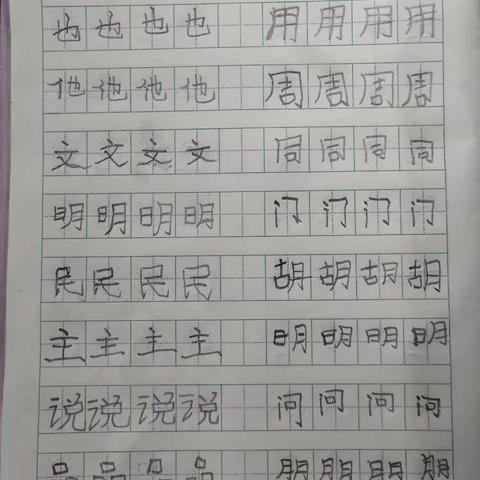 也也也也 用用用用
他他他他 周周周周
文文文文 同同同同
明明明明 门门门门
民民民民 胡胡胡胡
主主主主 明明明明
说说说说 问问问问
品品品品